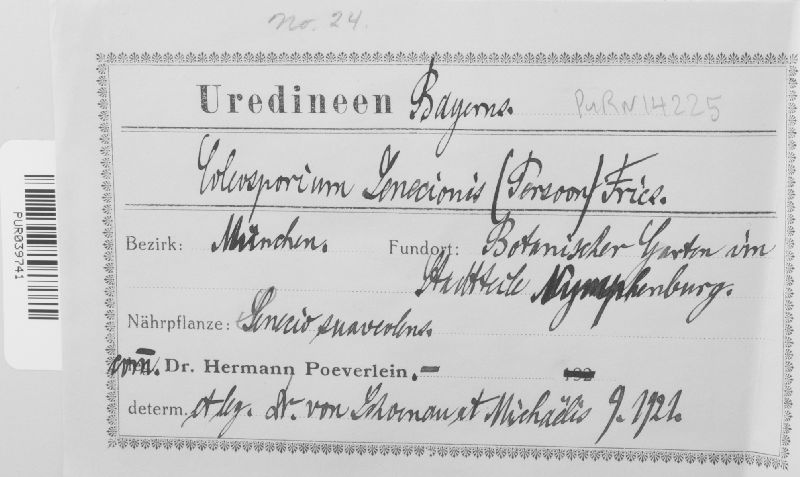 No. 24.
Uredineen Bayerns. PURN14225
Coleosporium Senecionis (Persoon) Fries.
Bezirk: München. Fundort: Botanischer Garten im
Stadtteile Nymphenburg.
Nährpflanze: Senecio suaveolens.
com. Dr. Hermann Poeverlein.–
determ. et leg. Dr. von Schoenau et Michaëlis 9. 1921.
PUR039741